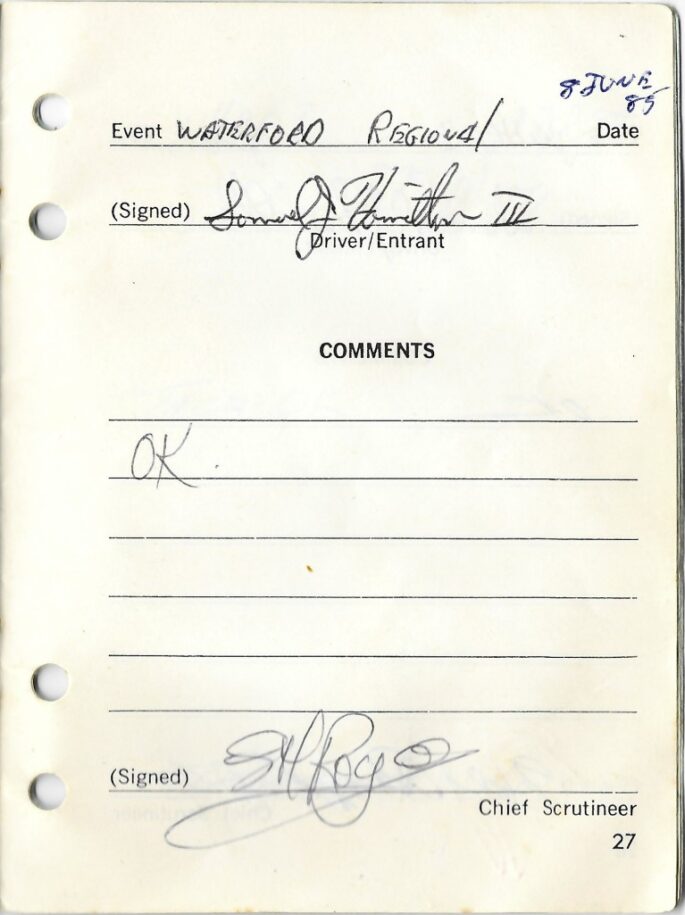 8 JUNE
85
Event WATERFORD REGIONAl Date
(Signed) Samuel J Hamilton III
Driver/Entrant
COMMENTS
OK.
(Signed)
Chief Scrutineer
27